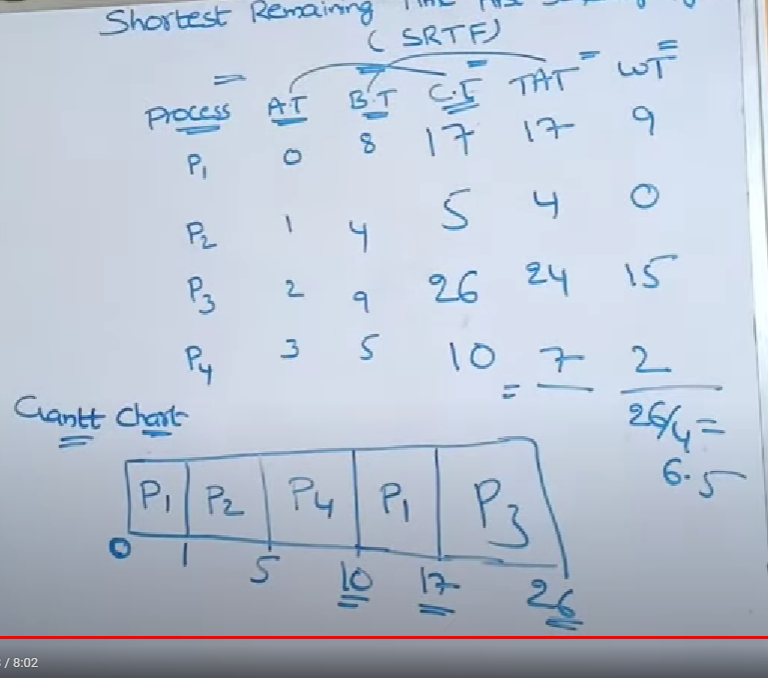 Shortest Remaining
( SRTF)
Process A.T B.T C.T TAT WT
P1 0 8 17 17 9
P2 1 4 5 4 0
P3 2 9 26 24 15
P4 3 5 10 = 7 2
26/4 =
6.5
Gantt Chart
P1 P2 P4 P1 P3
0 1 5 10 17 26
/ 8:02